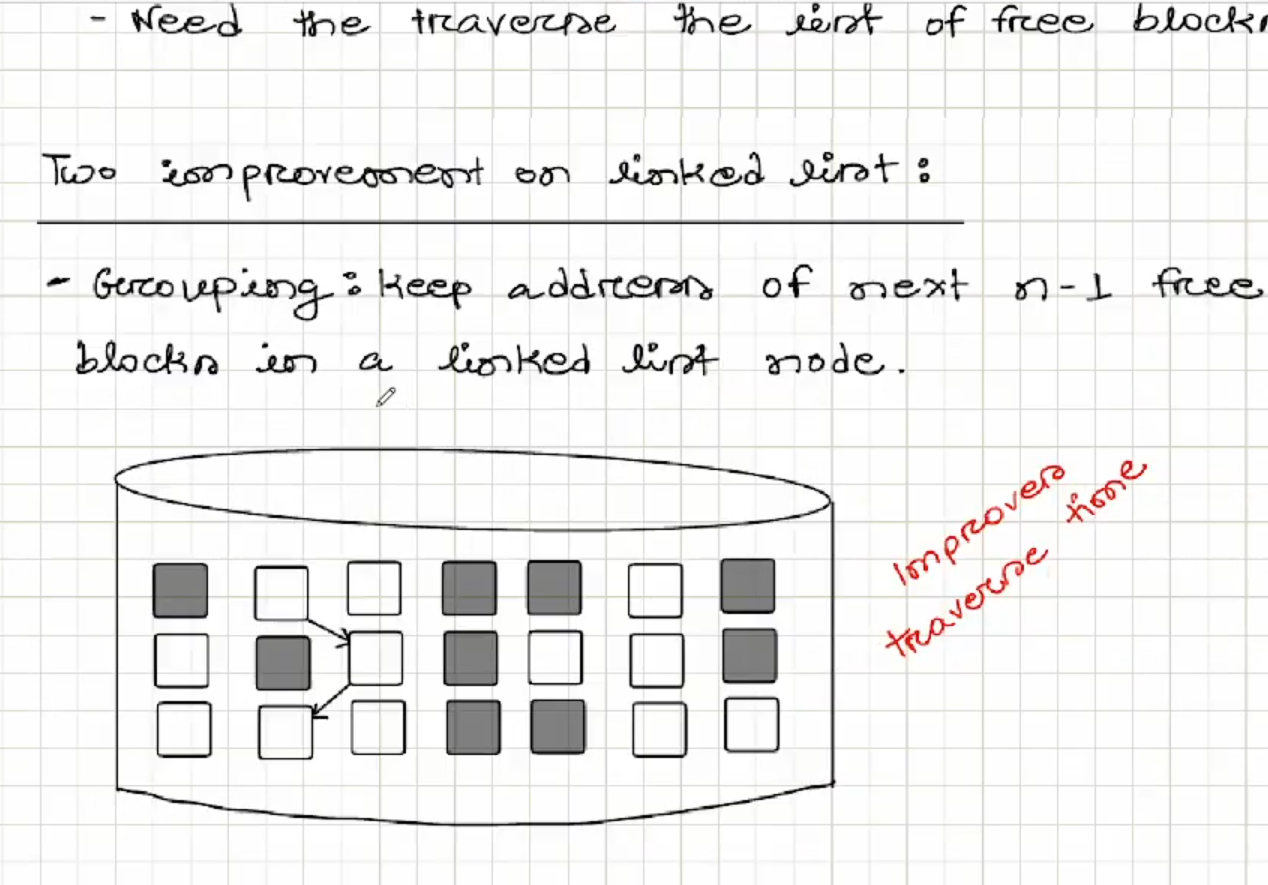 - Need the traverse the list of free blocks
Two improvement on linked list:
- Grouping: Keep address of next n-1 free
blocks in a linked list node.
Improves
traverse time